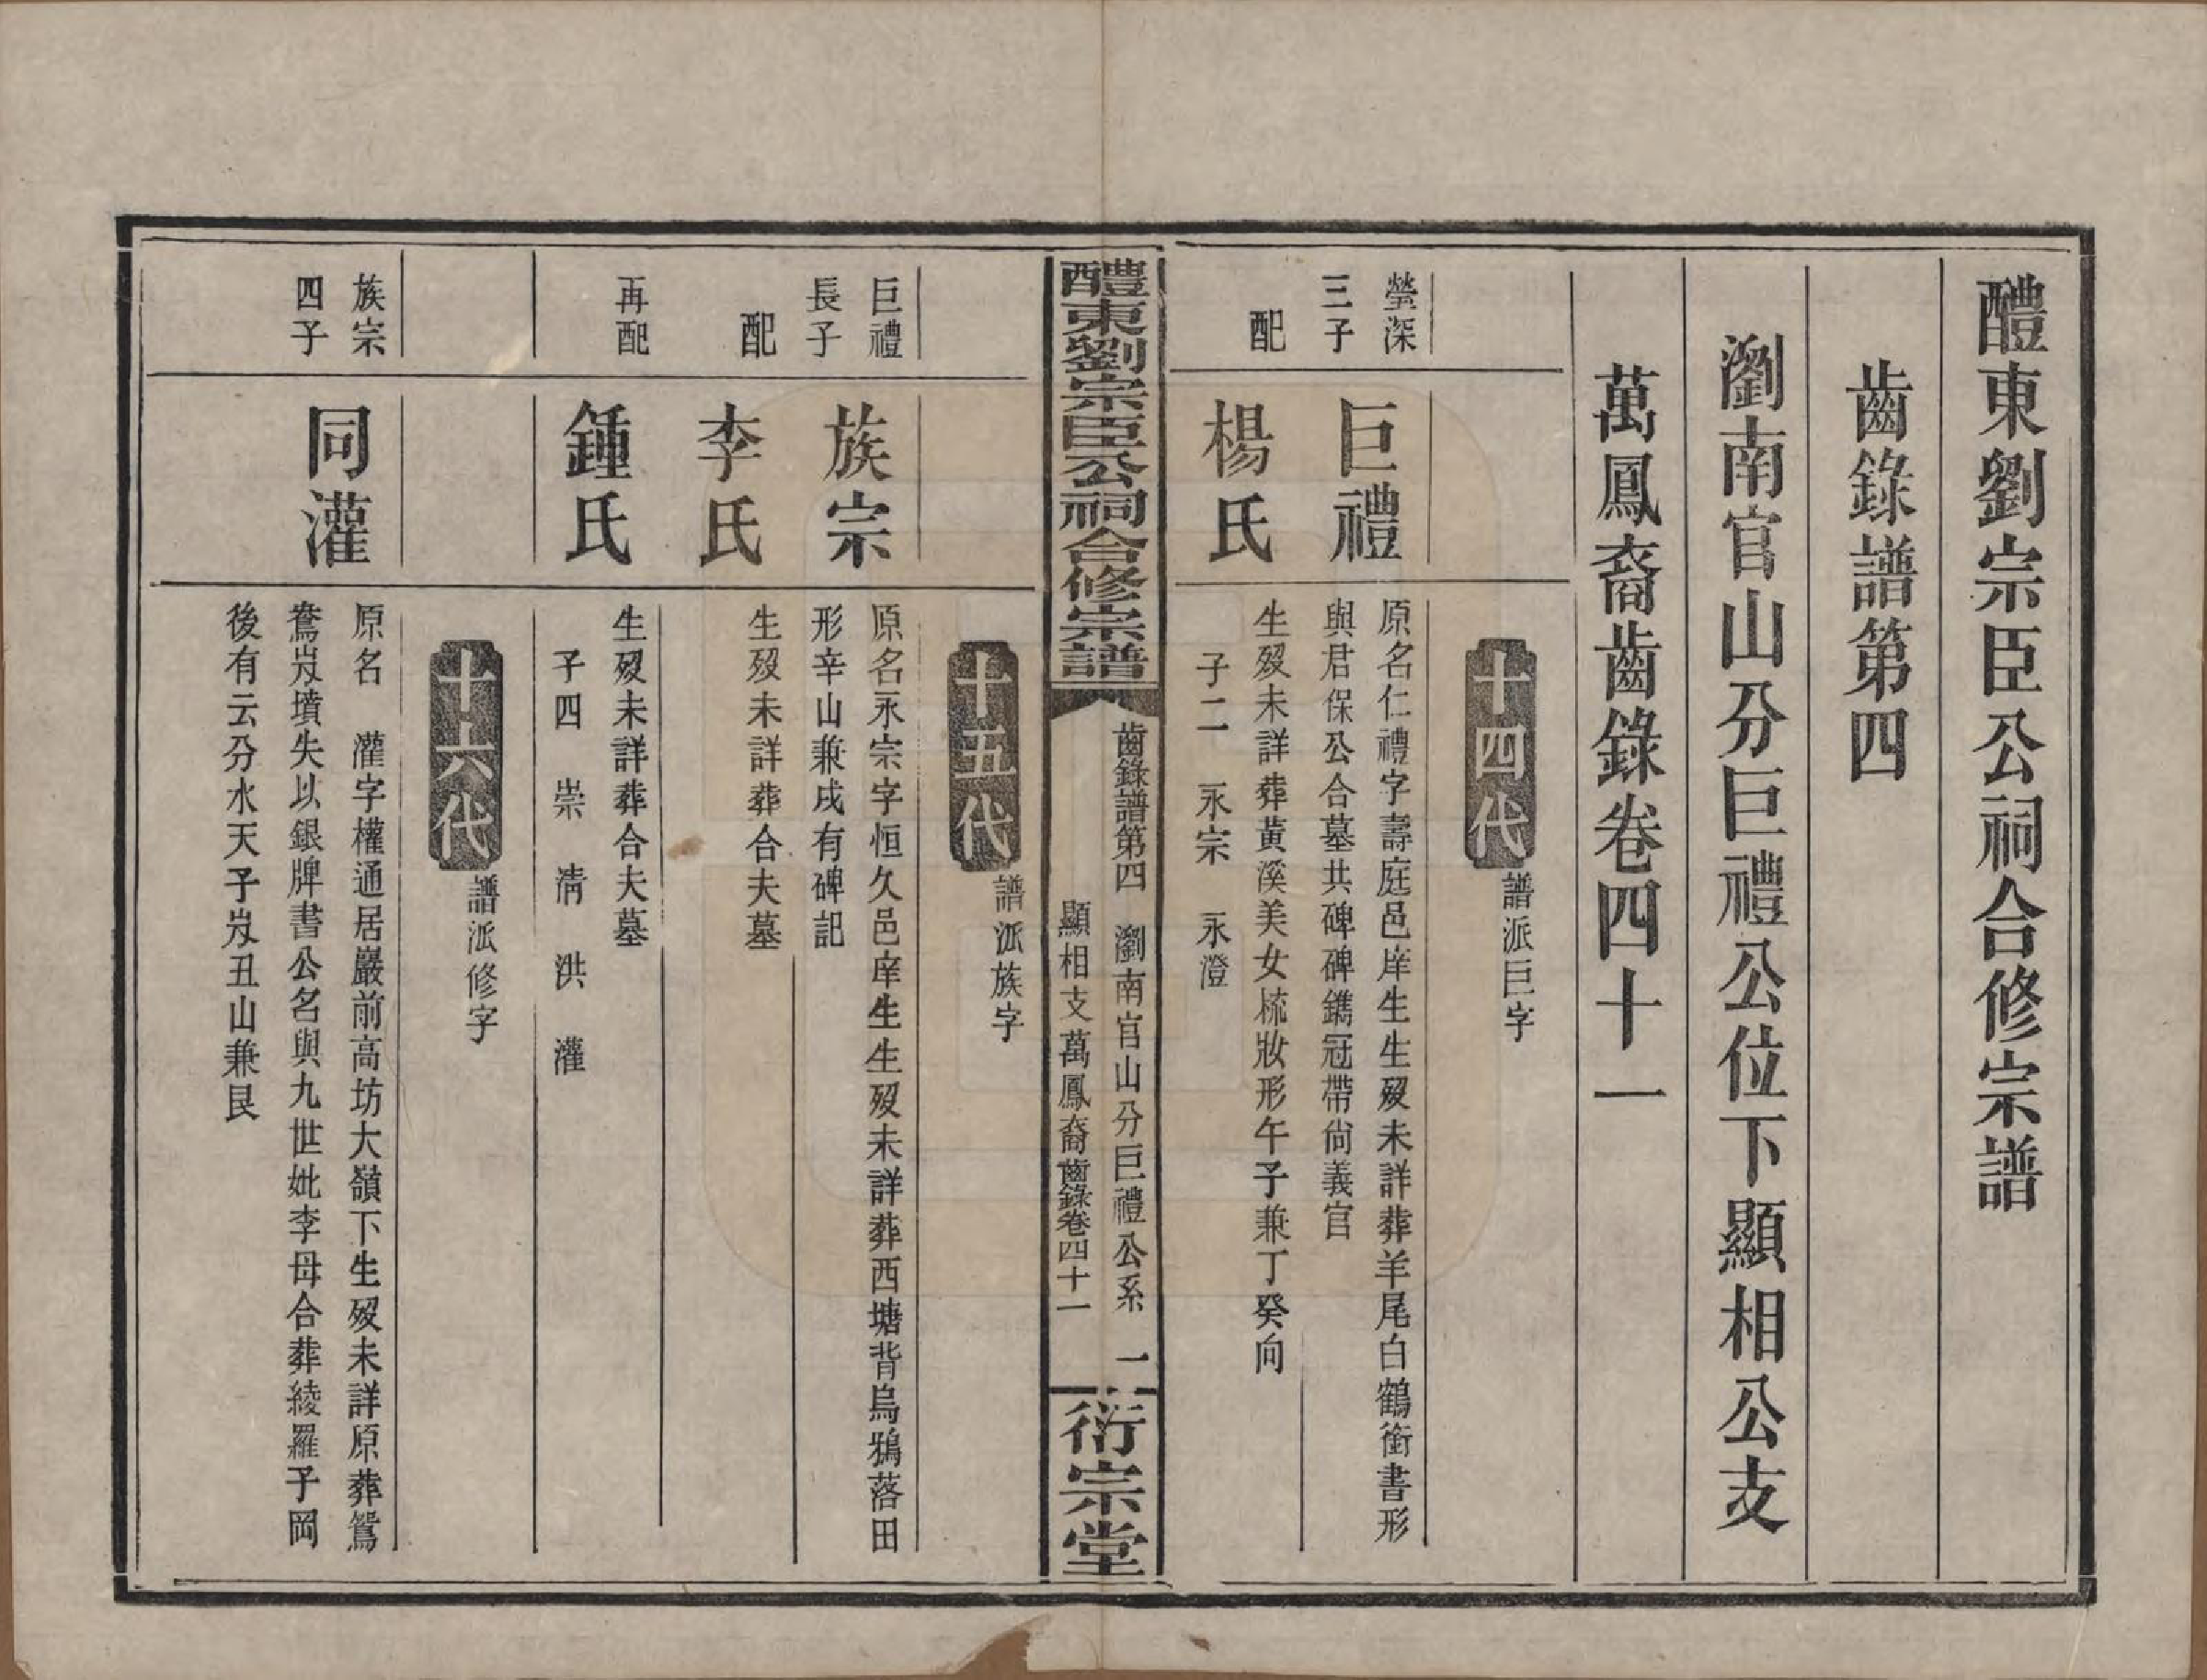 醴東劉宗臣公祠合修宗譜
齒錄譜第四
瀏南官山分巨禮公位下顯相公支
萬鳳裔齒錄卷四十一
十四代
譜派巨字
瑩深
三子
巨禮
原名仁禮字壽庭邑庠生生歿未詳葬羊尾白鶴銜書形
與君保公合墓共碑碑鐫冠帶尚義官
配
楊氏
生歿未詳葬黃溪美女梳妝形午子兼丁癸向
子二　永宗　永澄
醴東劉宗臣公祠合修宗譜
齒錄譜第四　瀏南官山分巨禮公系　一
顯相支萬鳳裔齒錄卷四十一
衍宗堂
十五代
譜派族字
巨禮
長子
族宗
原名永宗字恒久邑庠生生歿未詳葬西塘背烏鴉落田
形辛山兼戌有碑記
配
李氏
生歿未詳葬合夫墓
再配
鍾氏
生歿未詳葬合夫墓
子四　崇　清　洪　灌
十六代
譜派修字
族宗
四子
同灌
原名　灌字權通居巖前高坊大嶺下生歿未詳原葬鴛
鴦㞮墳失以銀牌書公名與九世妣李母合葬綾羅子岡
後有云分水天子㞮丑山兼艮